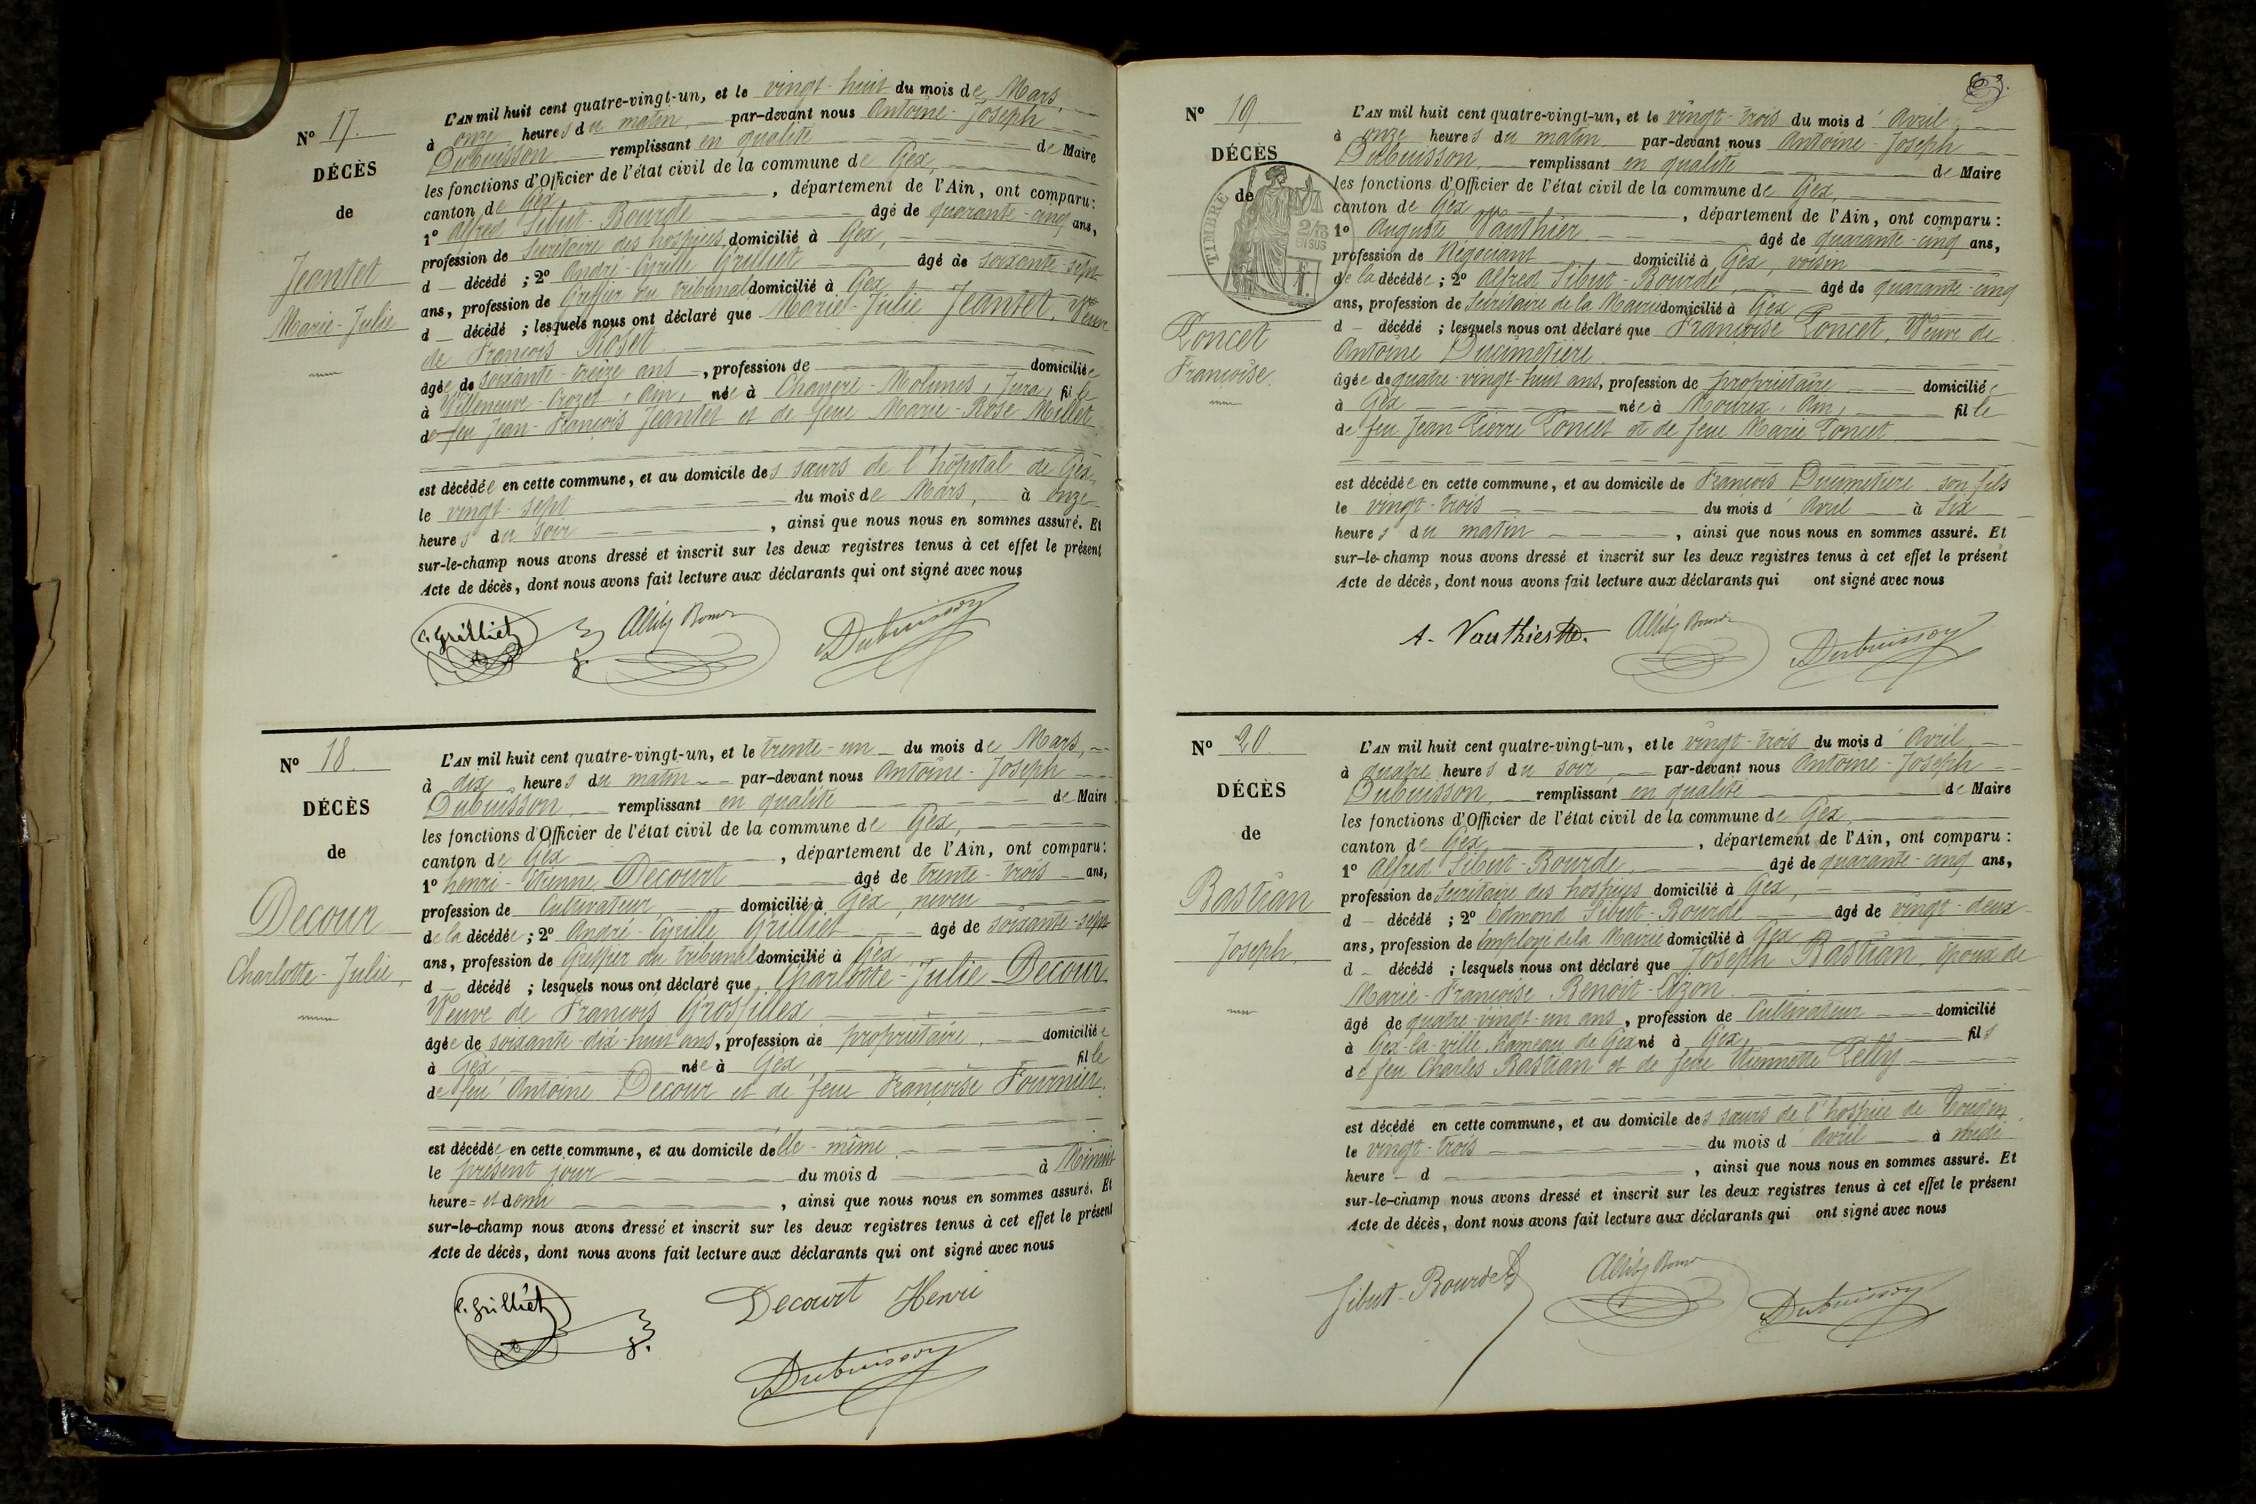 Nº 17.
DÉCÈS
de
Jeantet
Marie-Julie
L'AN mil huit cent quatre-vingt-un, et le vingt-huit du mois de Mars,
à onze heures du matin par-devant nous Antoine-Joseph
Dubuisson remplissant en qualité de Maire
les fonctions d'Officier de l'état civil de la commune de Gex,
canton de Gex, département de l'Ain, ont comparu :
1º Alfred Sibut-Bourde âgé de quarante-cinq ans,
profession de Secrétaire des hospices domicilié à Gex,
d décédé ; 2º André-Cyrille Grilliet âgé de soixante-sept
ans, profession de Greffier du tribunal domicilié à Gex
d décédé ; lesquels nous ont déclaré que Marie-Julie Jeantet, Veuve
de François Roset
âgée de soixante-treize ans, profession de domiciliée
à Villeneuve-Crozet, Ain, née à Molunes, Jura, fille
de feu Jean-François Jeantet et de feue Marie-Rose Millet
est décédée en cette commune, et au domicile des sœurs de l'hôpital de Gex,
le vingt-sept du mois de Mars, à onze
heures du soir, ainsi que nous nous en sommes assuré. Et
sur-le-champ nous avons dressé et inscrit sur les deux registres tenus à cet effet le présent
Acte de décès, dont nous avons fait lecture aux déclarants qui ont signé avec nous
C. Grilliet Dubuisson
Nº 18.
DÉCÈS
de
Decour
Charlotte-Julie,
L'AN mil huit cent quatre-vingt-un, et le trente-un du mois de Mars,
à dix heures du matin par-devant nous Antoine-Joseph
Dubuisson, remplissant en qualité de Maire
les fonctions d'Officier de l'état civil de la commune de Gex,
canton de Gex, département de l'Ain, ont comparu :
1º henri-Etienne Decourt âgé de trente-trois ans,
profession de Cultivateur domicilié à Gex, neveu
de la décédée ; 2º André-Cyrille Grilliet âgé de soixante-sept
ans, profession de Greffier du tribunal domicilié à Gex
d décédé ; lesquels nous ont déclaré que Charlotte-Julie Decour
Veuve de François Grossillex
âgée de soixante-dix-huit ans, profession de propriétaire, domiciliée
à Gex née à Gex fille
de feu Antoine Decour et de feue Françoise Fournier,
est décédée en cette commune, et au domicile delle-même
le présent jour du mois d à Minuit
heure et demi, ainsi que nous nous en sommes assuré. Et
sur-le-champ nous avons dressé et inscrit sur les deux registres tenus à cet effet le présent
Acte de décès, dont nous avons fait lecture aux déclarants qui ont signé avec nous
C. Grilliet Decourt Henri
Dubuisson
63.
Nº 19
DÉCÈS
de
TIMBRE
2/10 EN SUS
1 F.
Poncet
Françoise.
L'AN mil huit cent quatre-vingt-un, et le vingt-trois du mois d'Avril
à onze heures du matin par-devant nous Antoine-Joseph
Dubuisson remplissant en qualité de Maire
les fonctions d'Officier de l'état civil de la commune de Gex,
canton de Gex, département de l'Ain, ont comparu :
1º Auguste Vauthier âgé de quarante-cinq ans,
profession de Négociant domicilié à Gex, voisin
de la décédée ; 2º Alfred Sibut-Bourde, âgé de quarante-cinq
ans, profession de Secrétaire de la Mairie domicilié à Gex
d décédé ; lesquels nous ont déclaré que Françoise Poncet, Veuve de
Antoine Ducimetière
âgée de quatre-vingt-huit ans, profession de propriétaire domiciliée
à Gex née à Mourex, Ain, fille
de feu Jean Pierre Poncet et de feue Marie Poncet
est décédée en cette commune, et au domicile de François Ducimetière, son fils
le vingt-trois du mois d'Avril à Six
heures du matin, ainsi que nous nous en sommes assuré. Et
sur-le-champ nous avons dressé et inscrit sur les deux registres tenus à cet effet le présent
Acte de décès, dont nous avons fait lecture aux déclarants qui ont signé avec nous
A. Vauthier Dubuisson
Nº 20.
DÉCÈS
de
Bastian
Joseph.
L'AN mil huit cent quatre-vingt-un, et le vingt-trois du mois d'Avril
à quatre heures du soir, par-devant nous Antoine-Joseph
Dubuisson, remplissant en qualité de Maire
les fonctions d'Officier de l'état civil de la commune de Gex,
canton de Gex, département de l'Ain, ont comparu :
1º Alfred Sibut-Bourde, âgé de quarante-cinq ans,
profession de Secrétaire des hospices domicilié à Gex,
d décédé ; 2º Edmond Sibut-Bourde âgé de vingt-deux
ans, profession de Employé de la Mairie domicilié à Gex
d décédé ; lesquels nous ont déclaré que Joseph Bastian, époux de
Marie-Françoise Benoit-Gzon
âgé de quatre-vingt-un ans, profession de Cultivateur domicilié
à Gex-la-ville, hameau de Gex né à Gex, fils
de feu Charles Bastian et de feue Etiennette Pelly
est décédé en cette commune, et au domicile des sœurs de l'hospice de Tougin
le vingt-trois du mois d'Avril à midi
heure d, ainsi que nous nous en sommes assuré. Et
sur-le-champ nous avons dressé et inscrit sur les deux registres tenus à cet effet le présent
Acte de décès, dont nous avons fait lecture aux déclarants qui ont signé avec nous
Sibut-Bourde Dubuisson